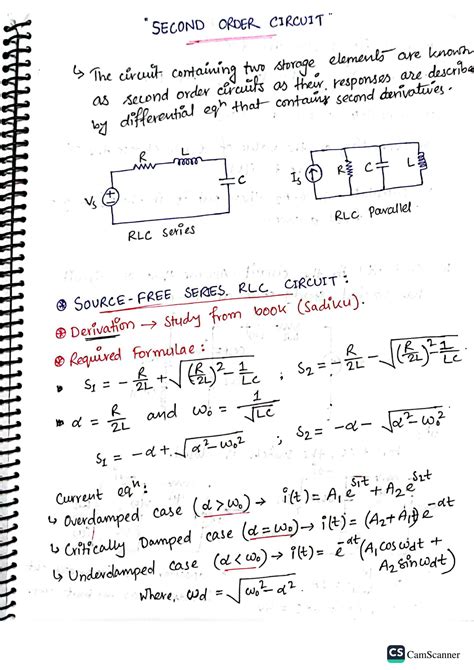 "SECOND ORDER CIRCUIT"
↳ The circuit containing two storage elements are known
as second order circuits as their responses are describe
by differential eqⁿ that contains second derivatives.
R L
Vs + - C
RLC series
Is R C L
RLC parallel
⊛ SOURCE-FREE SERIES RLC CIRCUIT:
⊛ Derivation → Study from book (Sadiku).
⊛ Required Formulae:
S₁ = -R/2L + √((R/2L)² - 1/LC) ; S₂ = -R/2L - √((R/2L)² - 1/LC)
α = R/2L and ω₀ = 1/√LC
S₁ = -α + √(α² - ω₀²) ; S₂ = -α - √(α² - ω₀²)
Current eqⁿ:
↳ Overdamped case (α > ω₀) → i(t) = A₁e^(s₁t) + A₂e^(s₂t)
↳ Critically Damped case (α = ω₀) → i(t) = (A₂ + A₁t)e^(-αt)
↳ Underdamped case (α < ω₀) → i(t) = e^(-αt)(A₁cosωdt +
A₂sinωdt)
Where, ωd = √(ω₀² - α²)
CS CamScanner